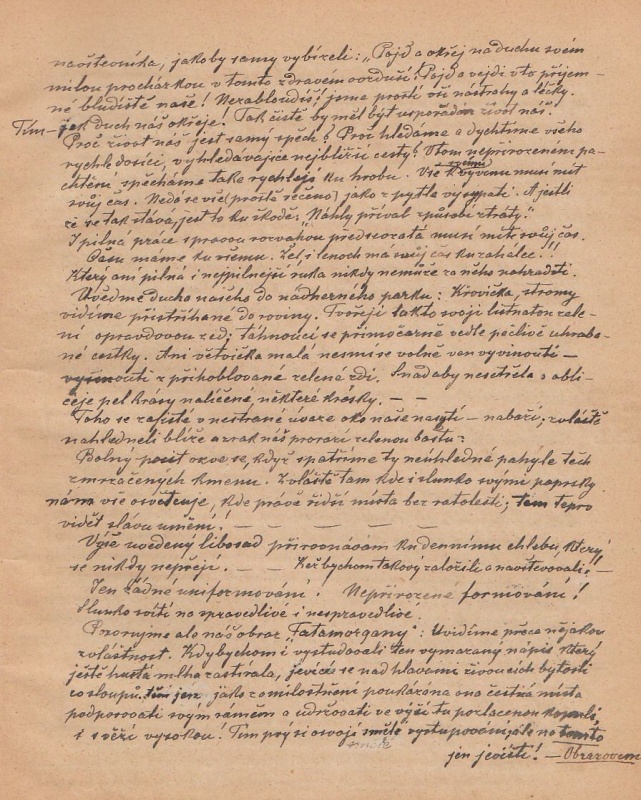 navštěvníka, jakoby samy vybízeli: „Pojď a okřej na duchu svém
milou procházkou v tomto zdravém ovzduší! Pojď a vejdi v to příjem-
né bludiště naše! Nezabloudíš! jsme prosti vší nástrahy a léčky.
Tím - jak duch náš okřeje! Tak čistě by měl být uspořádán život náš!
Proč život náš jest samý spěch? Proč hledáme a dychtíme všeho
rychle dosíci, vyhledávajíce nejbližší cesty? V tom nepřirozeném pa-
chtění spěcháme také rychleji ku hrobu. Vše k vývinu musí mít
svůj čas. Nedá se vše (prostě řečeno) jako z pytle vysypati. A jestli
že se tak stává, jest to ku škodě: „Náhlý příval způsobí ztráty."
I pilná práce s pravou rozvahou předsevzatá musí míti svůj čas.
Času máme ku všemu. Žel, i lenoch má svůj čas ku zahálce!!
Který ani pilná i nejpilnější ruka nikdy nemůže za něho nahraditi.
Uveďme ducha našeho do nádherného parku: Krovíčka, stromy
vidíme přistříhané do roviny. Tvořejí takto svojí listnatou zele-
ní opravdovou zeď; táhnoucí se přímočarně vedle pečlivě uhrabá-
né cestky. Ani větvička malá nesmí se volně ven vyvinouti —
z přihoblované zelené zdi. Snad aby nesetřela s obli-
čeje pel krásy nalíčené, některé krásky. — —
Toho se zajisté v nestrané úvaze oko naše nasytí — nabaží; zvláště
nahlédneli blíže a zrak náš prorazí zelenou baštu:
Bolný pocit ozve se, když spatříme ty neúhledné pahyle těch
zmrzačených kmenů. Zvláště tam kde i slunko svými paprsky
nám vše osvětluje, kde právě řidší místa bez ratolestí; tam teprv
vidět slávu umění! — — — — —
Výše uvedený libosad přirovnávám ku dennímu chlebu, který
se nikdy nepřejí. — — Kéž bychom takový založili a navštěvovali! —
Jen žádné uniformování! Nepřirozené formování!
Slunko svítí na spravedlivé i nespravedlivé.
Pozorujme ale náš obraz „Fatamorgany": Uvidíme přece nějakou
zvláštnost. Kdybychom i vystudovali ten vymazaný nápis který
ještě hustá mlha zastírala, jevící se nad hlavami živoucích bytostí
co sloupů, jako z milostnění poukázána ona čestná místa
podporovati svým rámem a udržovati ve výši tu pozlacenou kopuli
i s věží vysokou. Tím prý si osvojí smělé vystupování, ale na tomto
jen jevišti! — Obrazovém